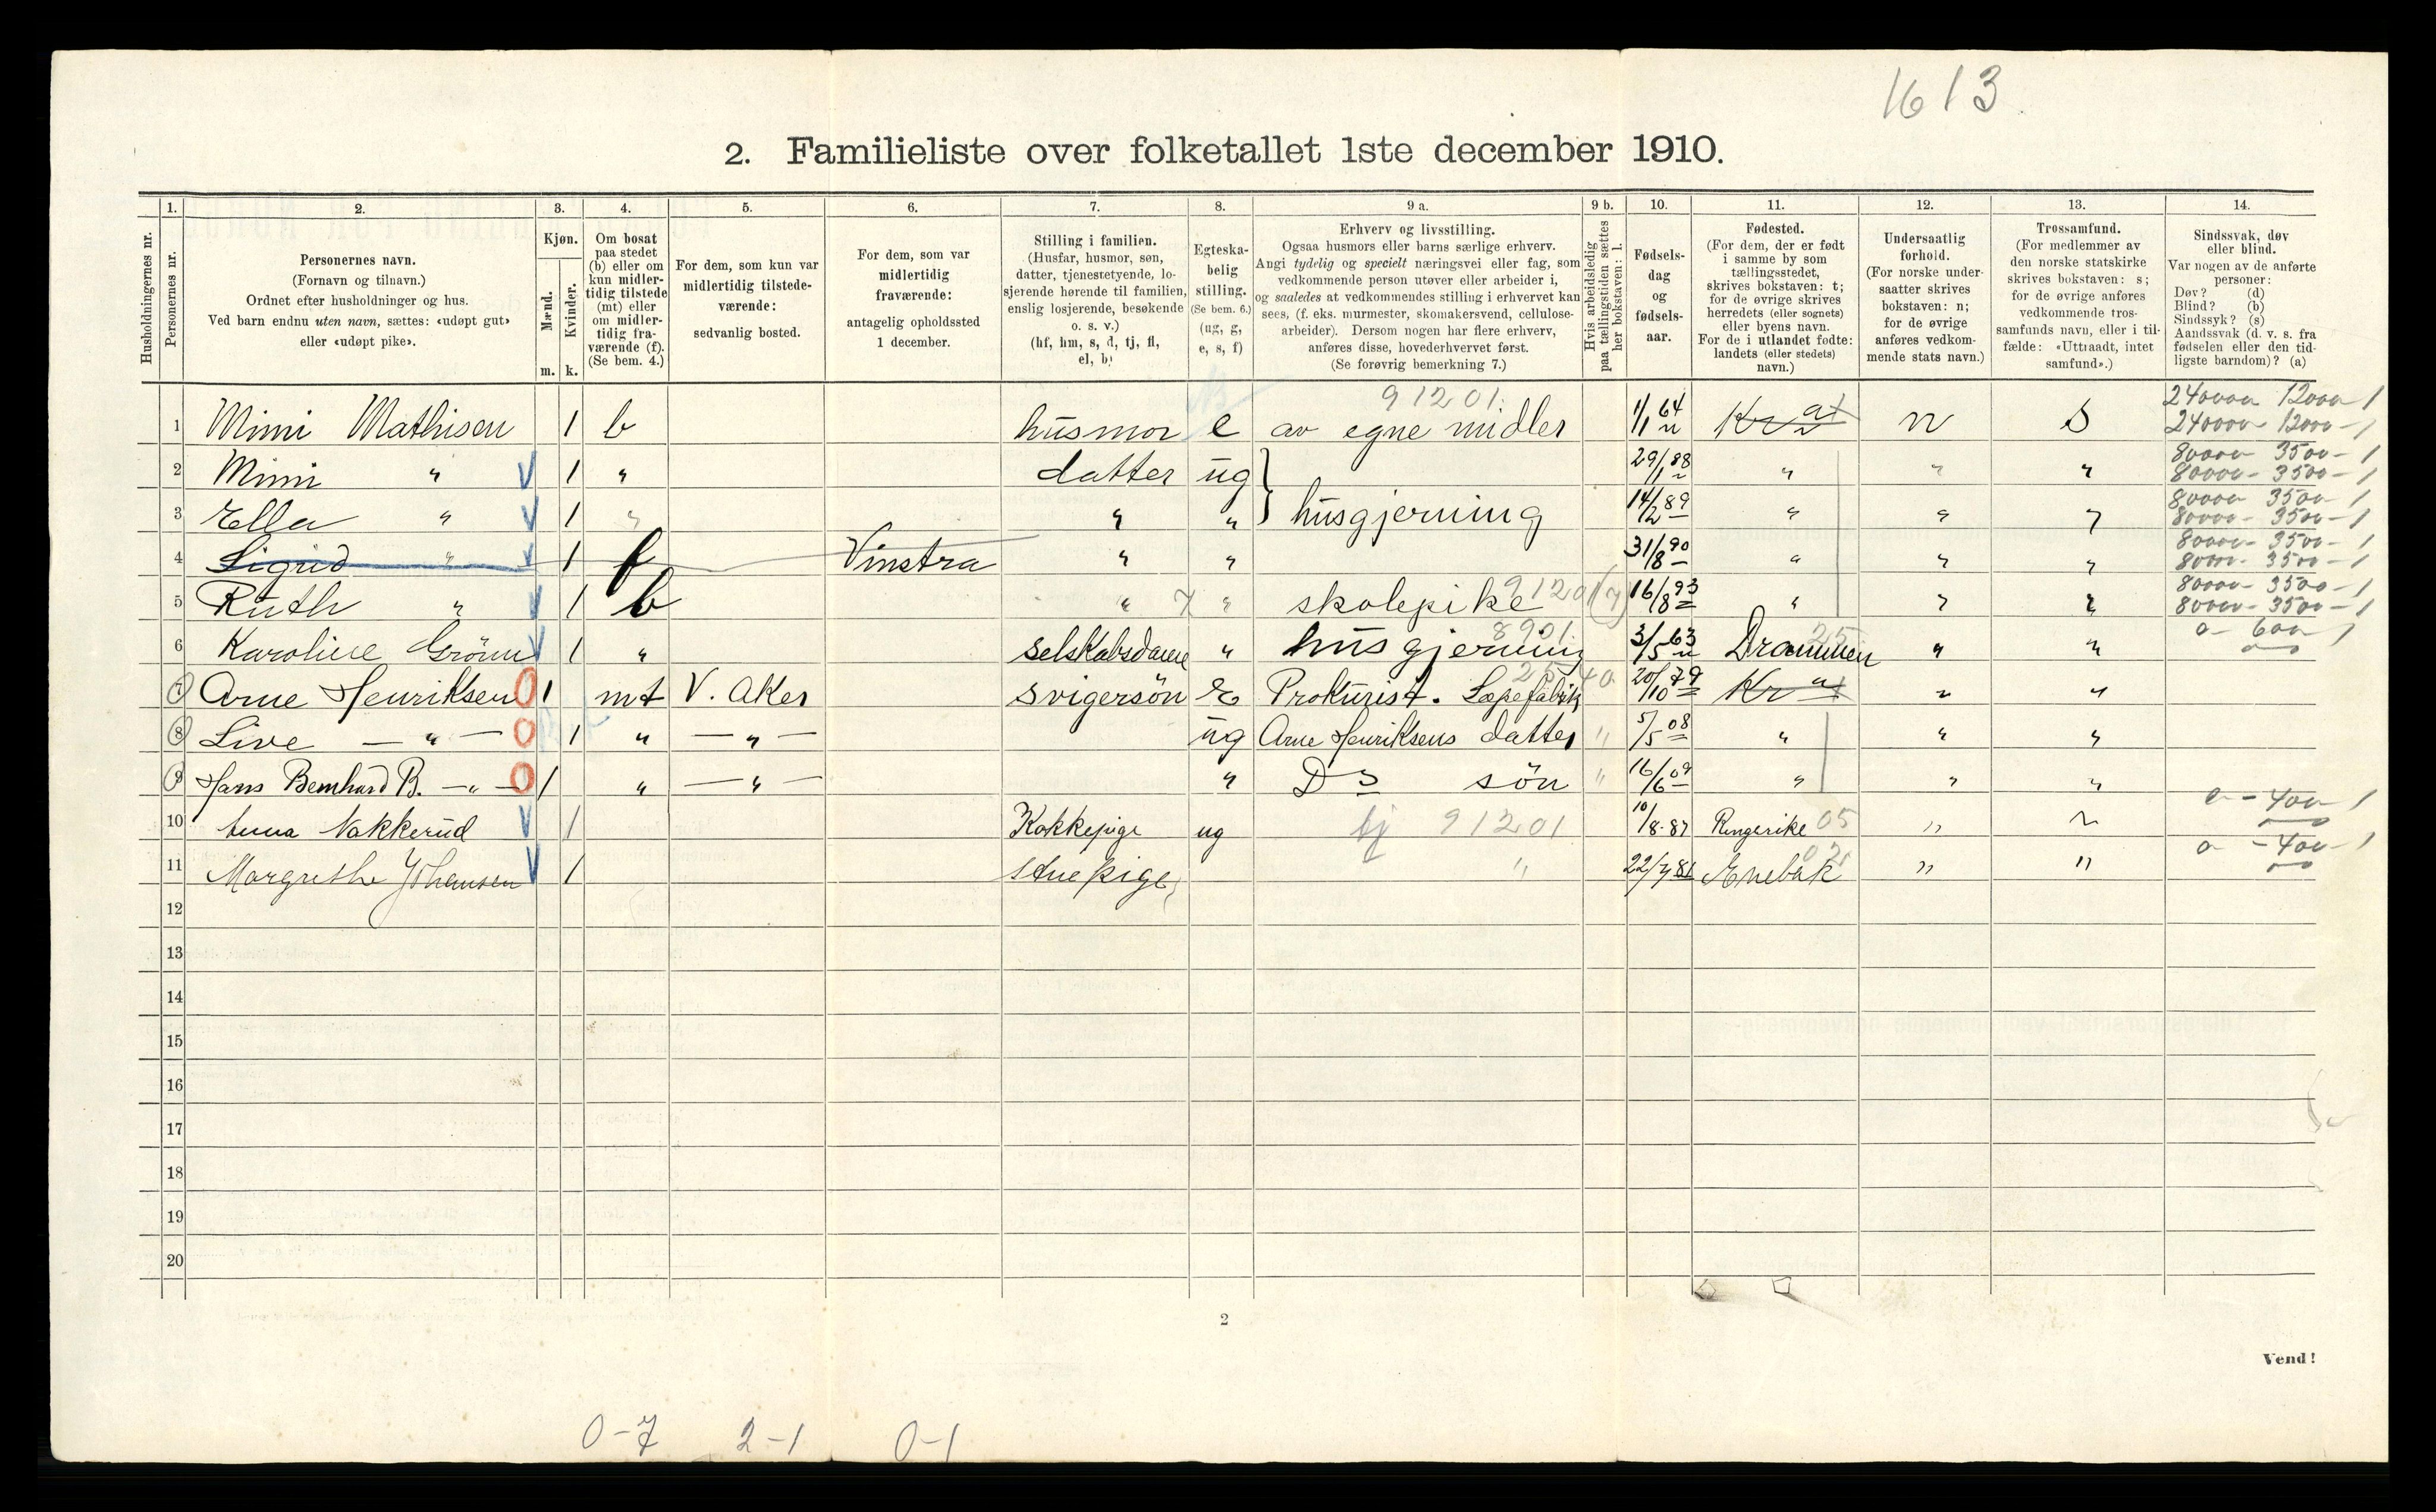 1613
2. Familieliste over folketallet 1ste december 1910.
1. 2. 3. 4. 5. 6. 7. 8. 9 a. 9 b. 10. 11. 12. 13. 14.
Husholdningernes nr.
Personernes nr.
Personernes navn.
(Fornavn og tilnavn.)
Ordnet efter husholdninger og hus.
Ved barn endnu uten navn, sættes: «udøpt gut»
eller «udøpt pike».
Kjøn.
Mænd.
Kvinder.
m. k.
Om bosat
paa stedet
(b) eller om
kun midler-
tidig tilstede
(mt) eller
om midler-
tidig fra-
værende (f).
(Se bem. 4.)
For dem, som kun var
midlertidig tilstede-
værende:
sedvanlig bosted.
For dem, som var
midlertidig
fraværende:
antagelig opholdssted
1 december.
Stilling i familien.
(Husfar, husmor, søn,
datter, tjenestetyende, lo-
sjerende hørende til familien,
enslig losjerende, besøkende
o. s. v.)
(hf, hm, s, d, tj, fl,
el, b)
Egteska-
belig
stilling.
(Se bem. 6.)
(ug, g,
e, s, f)
Erhverv og livsstilling.
Ogsaa husmors eller barns særlige erhverv.
Angi tydelig og specielt næringsvei eller fag, som
vedkommende person utøver eller arbeider i,
og saaledes at vedkommendes stilling i erhvervet kan
sees, (f. eks. murmester, skomakersvend, cellulose-
arbeider). Dersom nogen har flere erhverv,
anføres disse, hovederhvervet først.
(Se forøvrig bemerkning 7.)
Hvis arbeidsledig
paa tællingstiden sættes
her bokstaven: l.
Fødsels-
dag
og
fødsels-
aar.
Fødested.
(For dem, der er født
i samme by som
tællingsstedet,
skrives bokstaven: t;
for de øvrige skrives
herredets (eller sognets)
eller byens navn.
For de i utlandet fødte:
landets (eller stedets)
navn.)
Undersaatlig
forhold.
(For norske under-
saatter skrives
bokstaven: n;
for de øvrige
anføres vedkom-
mende stats navn.)
Trossamfund.
(For medlemmer av
den norske statskirke
skrives bokstaven: s;
for de øvrige anføres
vedkommende tros-
samfunds navn, eller i til-
fælde: «Uttraadt, intet
samfund».)
Sindssvak, døv
eller blind.
Var nogen av de anførte
personer:
Døv? (d)
Blind? (b)
Sindssyk? (s)
Aandssvak (d. v. s. fra
fødselen eller den tid-
ligste barndom)? (a)
91201. 240000 12000 1
1 Mimi Mathisen 1 b husmor e av egne midler 1/1 64 Kra t n S 240000 12000 - 1
80000 3500 - 1
2 Mimi " 1 " datter ug 29/1 88 " " " 80000 - 3500 - 1
80000 3500 - 1
3 Ella " 1 " " " husgjerning 14/2 89 " " " 80000 - 3500 - 1
80000 - 3500 - 1
4 Sigrid " 1 f Vinstra " " 31/8 90 " " " 80000 - 3500 - 1
80000 - 3500 - 1
5 Ruth " 1 b " 7 " skolepike 91201 (7) 16/8 93 " " " 80000 - 3500 - 1
6 Karoline Grönn 1 " Selskabsdame " husgjerning 8901. 3/5 63 Drammen 25 " " 0 - 600 1
7 Arne Henriksen 0 1 mt V. Aker Svigersön E Prokurist. Sæpefabrik 25540 20/10 79 Kra t " "
8 Live - " - 0 1 " - " - ug Arne Henriksens datter " 5/5 08 " " "
9 Hans Bernhard B. - " - 0 1 " - " - " Do sön " 16/6 09 " " "
10 Anna Nakkerud 1 Kokkepige ug tj 91201 10/8-87 Ringerike 05 " 0 - 400 1
11 Margrethe Johansen 1 Stuepige " 22/7 81 Enebak 02 " " 0 - 400 - 1
12
13
14
15
16
17
18
19
20
2
Vend!
0-7 2-1 0-1